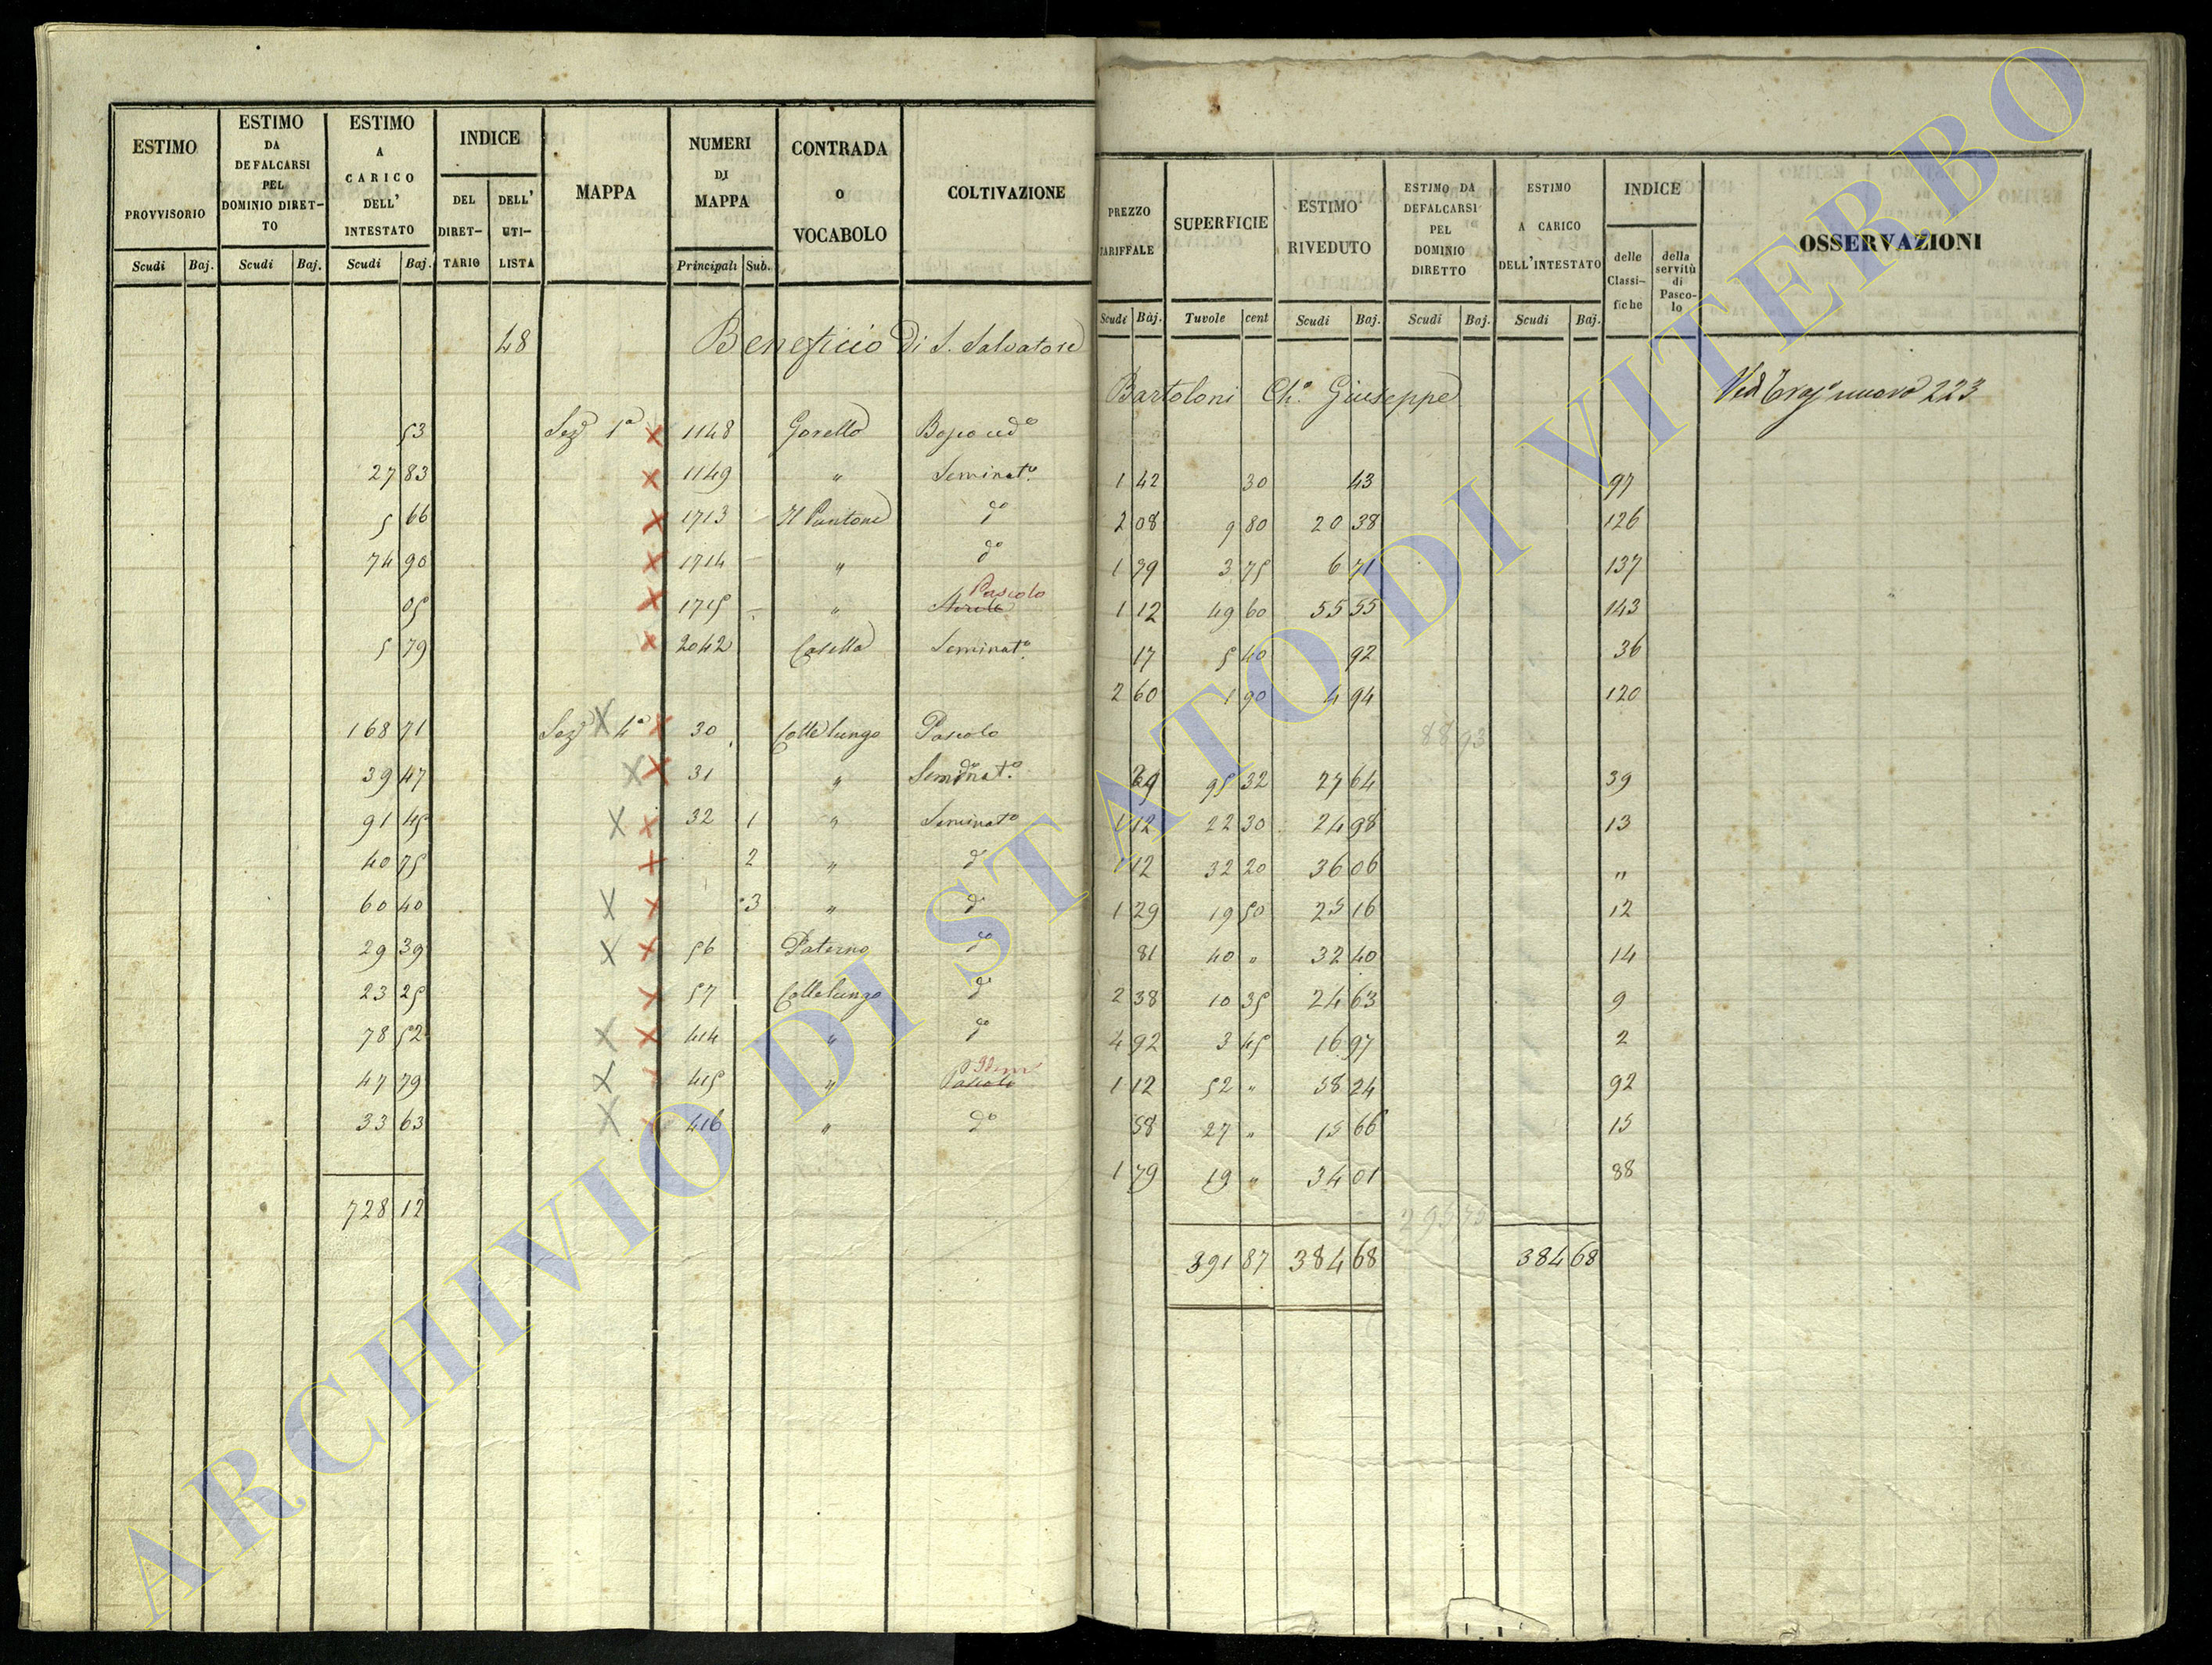 ESTIMO PROVVISORIO Scudi Baj.
ESTIMO DA DEFALCARSI PEL DOMINIO DIRET-TO Scudi Baj.
ESTIMO A CARICO DELL' INTESTATO Scudi Baj.
INDICE DEL DIRET-TARIO DELL' UTI-LISTA
MAPPA
NUMERI DI MAPPA Principali Sub.
CONTRADA o VOCABOLO
COLTIVAZIONE
48 Beneficio di S. Salvatore
53 Sez.e 1a 1148 Gorello Bosco ced.o
27 83 1149 " Seminat.o
5 66 1713 Il Puntone do
74 90 1714 " do
05 1715 " Sterile Pascolo
5 79 2042 Casella Seminat.o
168 71 Sez.e 4a 30 Colle lungo Pascolo
39 47 31 " Seminat.o
91 45 32 1 " Seminat.o
40 75 2 " do
60 40 3 " do
29 39 56 Paterno do
23 25 57 Collelungo do
78 52 414 " do
47 79 415 " Pascolo Idem
33 63 416 " do
728 12
PREZZO TARIFFALE Scudi Baj.
SUPERFICIE Tavole cent
ESTIMO RIVEDUTO Scudi Baj.
ESTIMO DA DEFALCARSI PEL DOMINIO DIRETTO Scudi Baj.
ESTIMO A CARICO DELL'INTESTATO Scudi Baj.
INDICE delle Classi-fiche della servitù di Pasco-lo
OSSERVAZIONI
Bartoloni Ch.o Giuseppe
223
1 42 30 43 97
2 08 9 80 20 38 126
1 79 3 75 6 71 137
1 12 49 60 55 55 143
17 5 40 92 36
2 60 1 90 4 94 120
88 93
29 95 32 27 64 39
1 12 22 30 24 98 13
1 12 32 20 36 06 "
1 29 19 50 25 16 12
81 40 " 32 40 14
2 38 10 35 24 63 9
4 92 3 45 16 97 2
1 12 52 " 58 24 92
58 27 " 15 66 15
1 79 19 " 34 01 88
295 75
391 87 384 68 384 68
ARCHIVIO DI STATO DI VITERBO